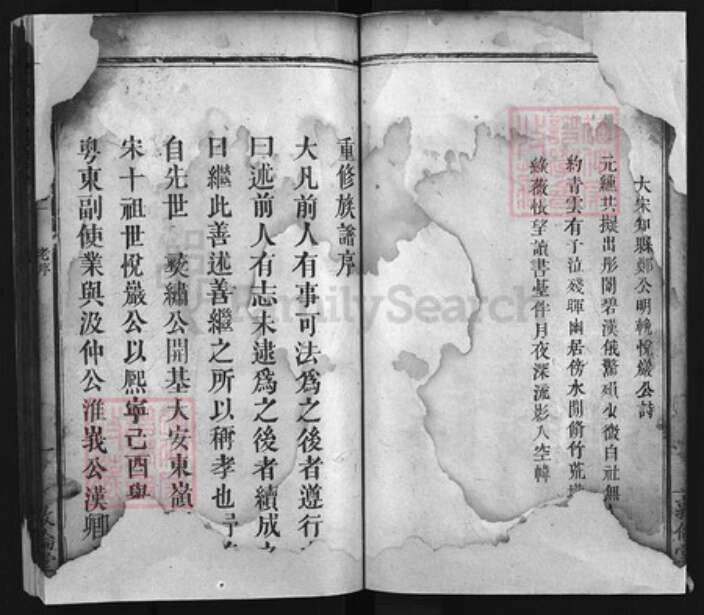 大宋知縣鄭公明輓悅巖公詩
元纁共擬出彤闈碧漢俄驚殞少微白社無
約青雲有子泣殘暉幽居傍水閒脩竹荒
綠薇悵望讀書基伴月夜深流影入空幃
重修族譜序
大凡前人有事可法為之後者遵行
曰述前人有志未逮為之後者續成
曰繼此善述善繼之所以稱孝也
自先世 奕繡公開基大安東嶺
宋十祖世悅巖公以熙寧己酉與
粵東副使業與汲仲公淮義公漢卿
老序
一
FamilySearch